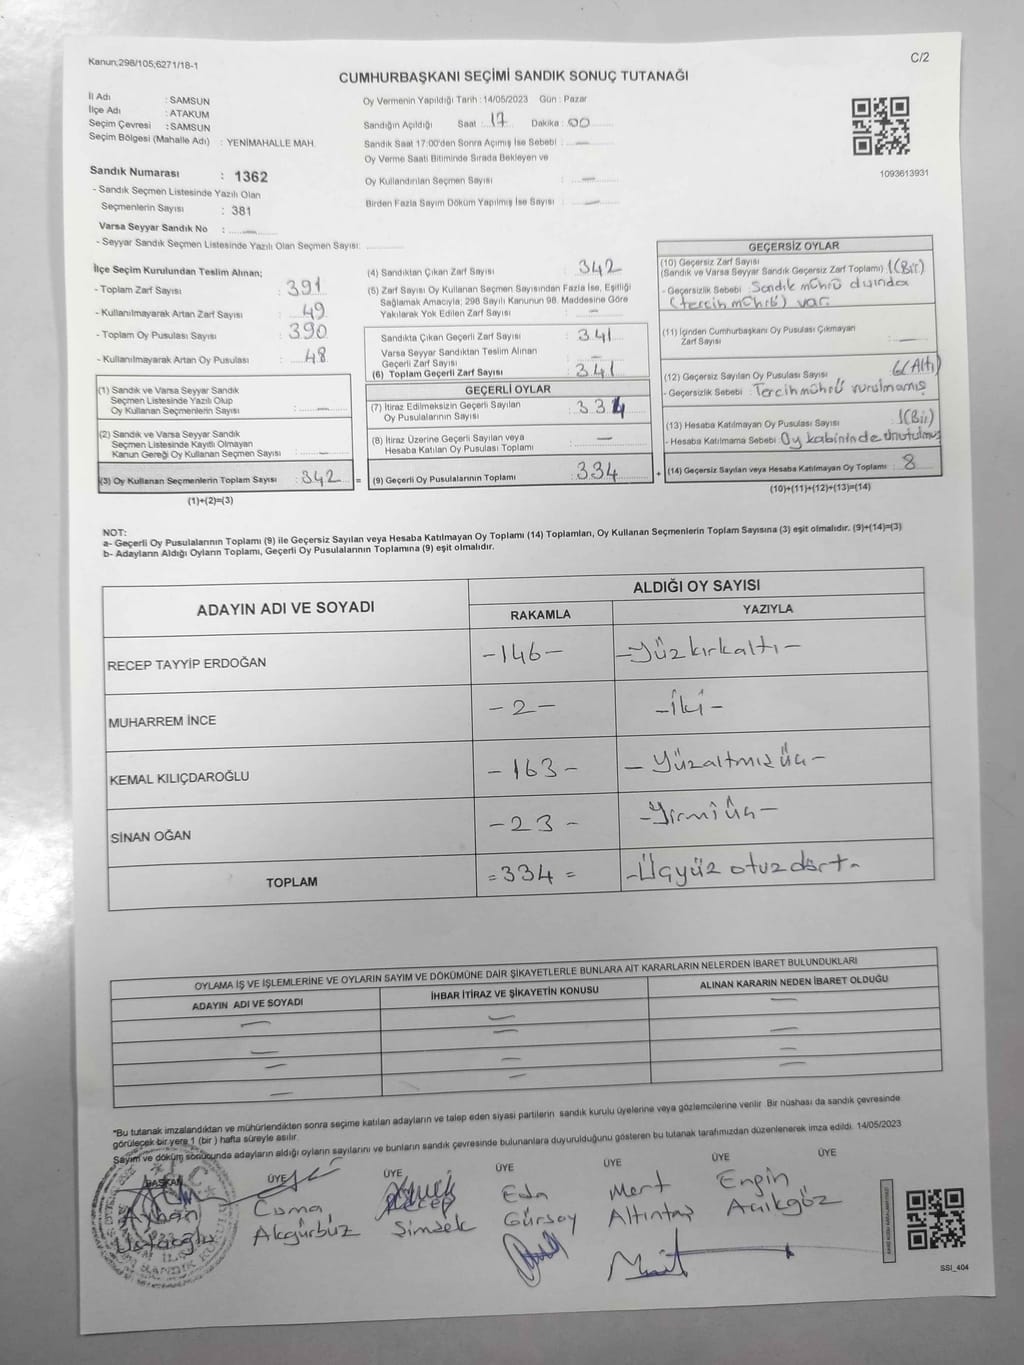 Kanun;298/105;6271/18-1
C/2
CUMHURBAŞKANI SEÇİMİ SANDIK SONUÇ TUTANAĞI
İl Adı : SAMSUN
İlçe Adı : ATAKUM
Seçim Çevresi : SAMSUN
Seçim Bölgesi (Mahalle Adı) : YENİMAHALLE MAH.
Oy Vermenin Yapıldığı Tarih : 14/05/2023 Gün : Pazar
Sandığın Açıldığı Saat : 17 Dakika : 00
Sandık Saat 17:00'den Sonra Açımış İse Sebebi : —
Oy Verme Saati Bitiminde Sırada Bekleyen ve
Oy Kullandırılan Seçmen Sayısı : —
Birden Fazla Sayım Döküm Yapılmış İse Sayısı : —
1093613931
Sandık Numarası : 1362
- Sandık Seçmen Listesinde Yazılı Olan
Seçmenlerin Sayısı : 381
Varsa Seyyar Sandık No : —
- Seyyar Sandık Seçmen Listesinde Yazılı Olan Seçmen Sayısı:
İlçe Seçim Kurulundan Teslim Alınan;
- Toplam Zarf Sayısı : 391
- Kullanılmayarak Artan Zarf Sayısı : 49
- Toplam Oy Pusulası Sayısı : 390
- Kullanılmayarak Artan Oy Pusulası : 48
(1) Sandık ve Varsa Seyyar Sandık
Seçmen Listesinde Yazılı Olup
Oy Kullanan Seçmenlerin Sayısı : —
(2) Sandık ve Varsa Seyyar Sandık
Seçmen Listesinde Kayıtlı Olmayan
Kanun Gereği Oy Kullanan Seçmen Sayısı : —
(3) Oy Kullanan Seçmenlerin Toplam Sayısı : 342 =
(1)+(2)=(3)
(4) Sandıktan Çıkan Zarf Sayısı : 342
(5) Zarf Sayısı Oy Kullanan Seçmen Sayısından Fazla İse, Eşitliği
Sağlamak Amacıyla; 298 Sayılı Kanunun 98. Maddesine Göre
Yakılarak Yok Edilen Zarf Sayısı : —
Sandıkta Çıkan Geçerli Zarf Sayısı : 341
Varsa Seyyar Sandıktan Teslim Alınan
Geçerli Zarf Sayısı : —
(6) Toplam Geçerli Zarf Sayısı : 341
GEÇERLİ OYLAR
(7) İtiraz Edilmeksizin Geçerli Sayılan
Oy Pusulalarının Sayısı : 334
(8) İtiraz Üzerine Geçerli Sayılan veya
Hesaba Katılan Oy Pusulası Toplamı : —
(9) Geçerli Oy Pusulalarının Toplamı : 334 +
GEÇERSİZ OYLAR
(10) Geçersiz Zarf Sayısı
(Sandık ve Varsa Seyyar Sandık Geçersiz Zarf Toplamı) 1(Bir)
- Geçersizlik Sebebi : Sandık mührü dışında
(tercih mührü) var.
(11) İçinden Cumhurbaşkanı Oy Pusulası Çıkmayan
Zarf Sayısı : —
(12) Geçersiz Sayılan Oy Pusulası Sayısı : 6(Altı)
- Geçersizlik Sebebi : Tercih mührü vurulmamış
(13) Hesaba Katılmayan Oy Pusulası Sayısı : 1(Bir)
- Hesaba Katılmama Sebebi : Oy kabininde unutulmuş
(14) Geçersiz Sayılan veya Hesaba Katılmayan Oy Toplamı : 8
(10)+(11)+(12)+(13)=(14)
NOT:
a- Geçerli Oy Pusulalarının Toplamı (9) ile Geçersiz Sayılan veya Hesaba Katılmayan Oy Toplamı (14) Toplamları, Oy Kullanan Seçmenlerin Toplam Sayısına (3) eşit olmalıdır. (9)+(14)=(3)
b- Adayların Aldığı Oyların Toplamı, Geçerli Oy Pusulalarının Toplamına (9) eşit olmalıdır.
ADAYIN ADI VE SOYADI
ALDIĞI OY SAYISI
RAKAMLA YAZIYLA
RECEP TAYYİP ERDOĞAN -146- -Yüzkırkaltı-
MUHARREM İNCE -2- -İki-
KEMAL KILIÇDAROĞLU -163- -Yüzaltmışüç-
SİNAN OĞAN -23- -Yirmiüç-
TOPLAM =334= -Üçyüz otuzdört-
OYLAMA İŞ VE İŞLEMLERİNE VE OYLARIN SAYIM VE DÖKÜMÜNE DAİR ŞİKAYETLERLE BUNLARA AİT KARARLARIN NELERDEN İBARET BULUNDUKLARI
ADAYIN ADI VE SOYADI İHBAR İTİRAZ VE ŞİKAYETİN KONUSU ALINAN KARARIN NEDEN İBARET OLDUĞU
*Bu tutanak imzalandıktan ve mühürlendikten sonra seçime katılan adayların ve talep eden siyasi partilerin sandık kurulu üyelerine veya gözlemcilerine verilir. Bir nüshası da sandık çevresinde
görülecek bir yere 1 (bir) hafta süreyle asılır.
Sayım ve döküm sonucunda adayların aldığı oyların sayılarını ve bunların sandık çevresinde bulunanlara duyurulduğunu gösteren bu tutanak tarafımızdan düzenlenerek imza edildi. 14/05/2023
BAŞKAN ÜYE ÜYE ÜYE ÜYE ÜYE ÜYE
Ayhan Recep Eda Mert Engin
Akgürbüz Şimşek Gürsoy Altıntaş Açıkgöz
SSI_404